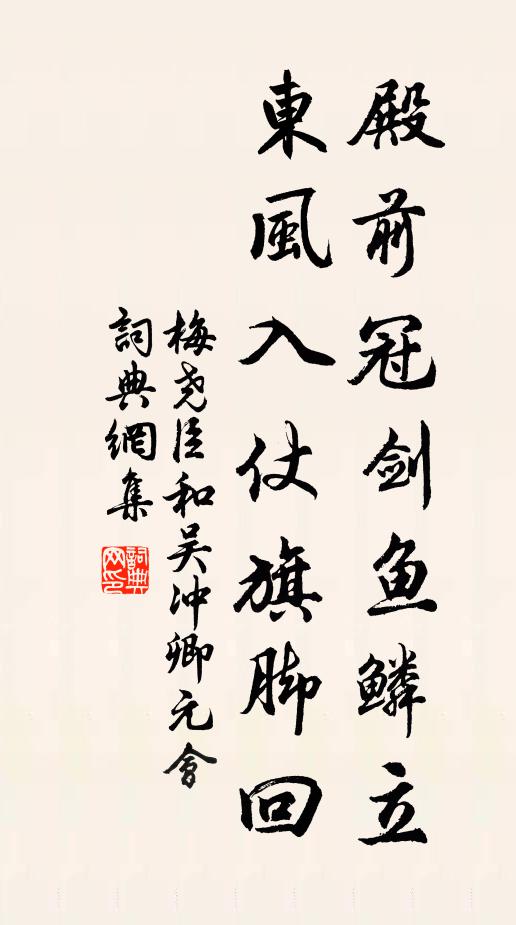 殿前冠剑鱼鳞立
東風入仗旗脚回
梅尧臣和吴冲卿元會
詞典網集
詞典
网印